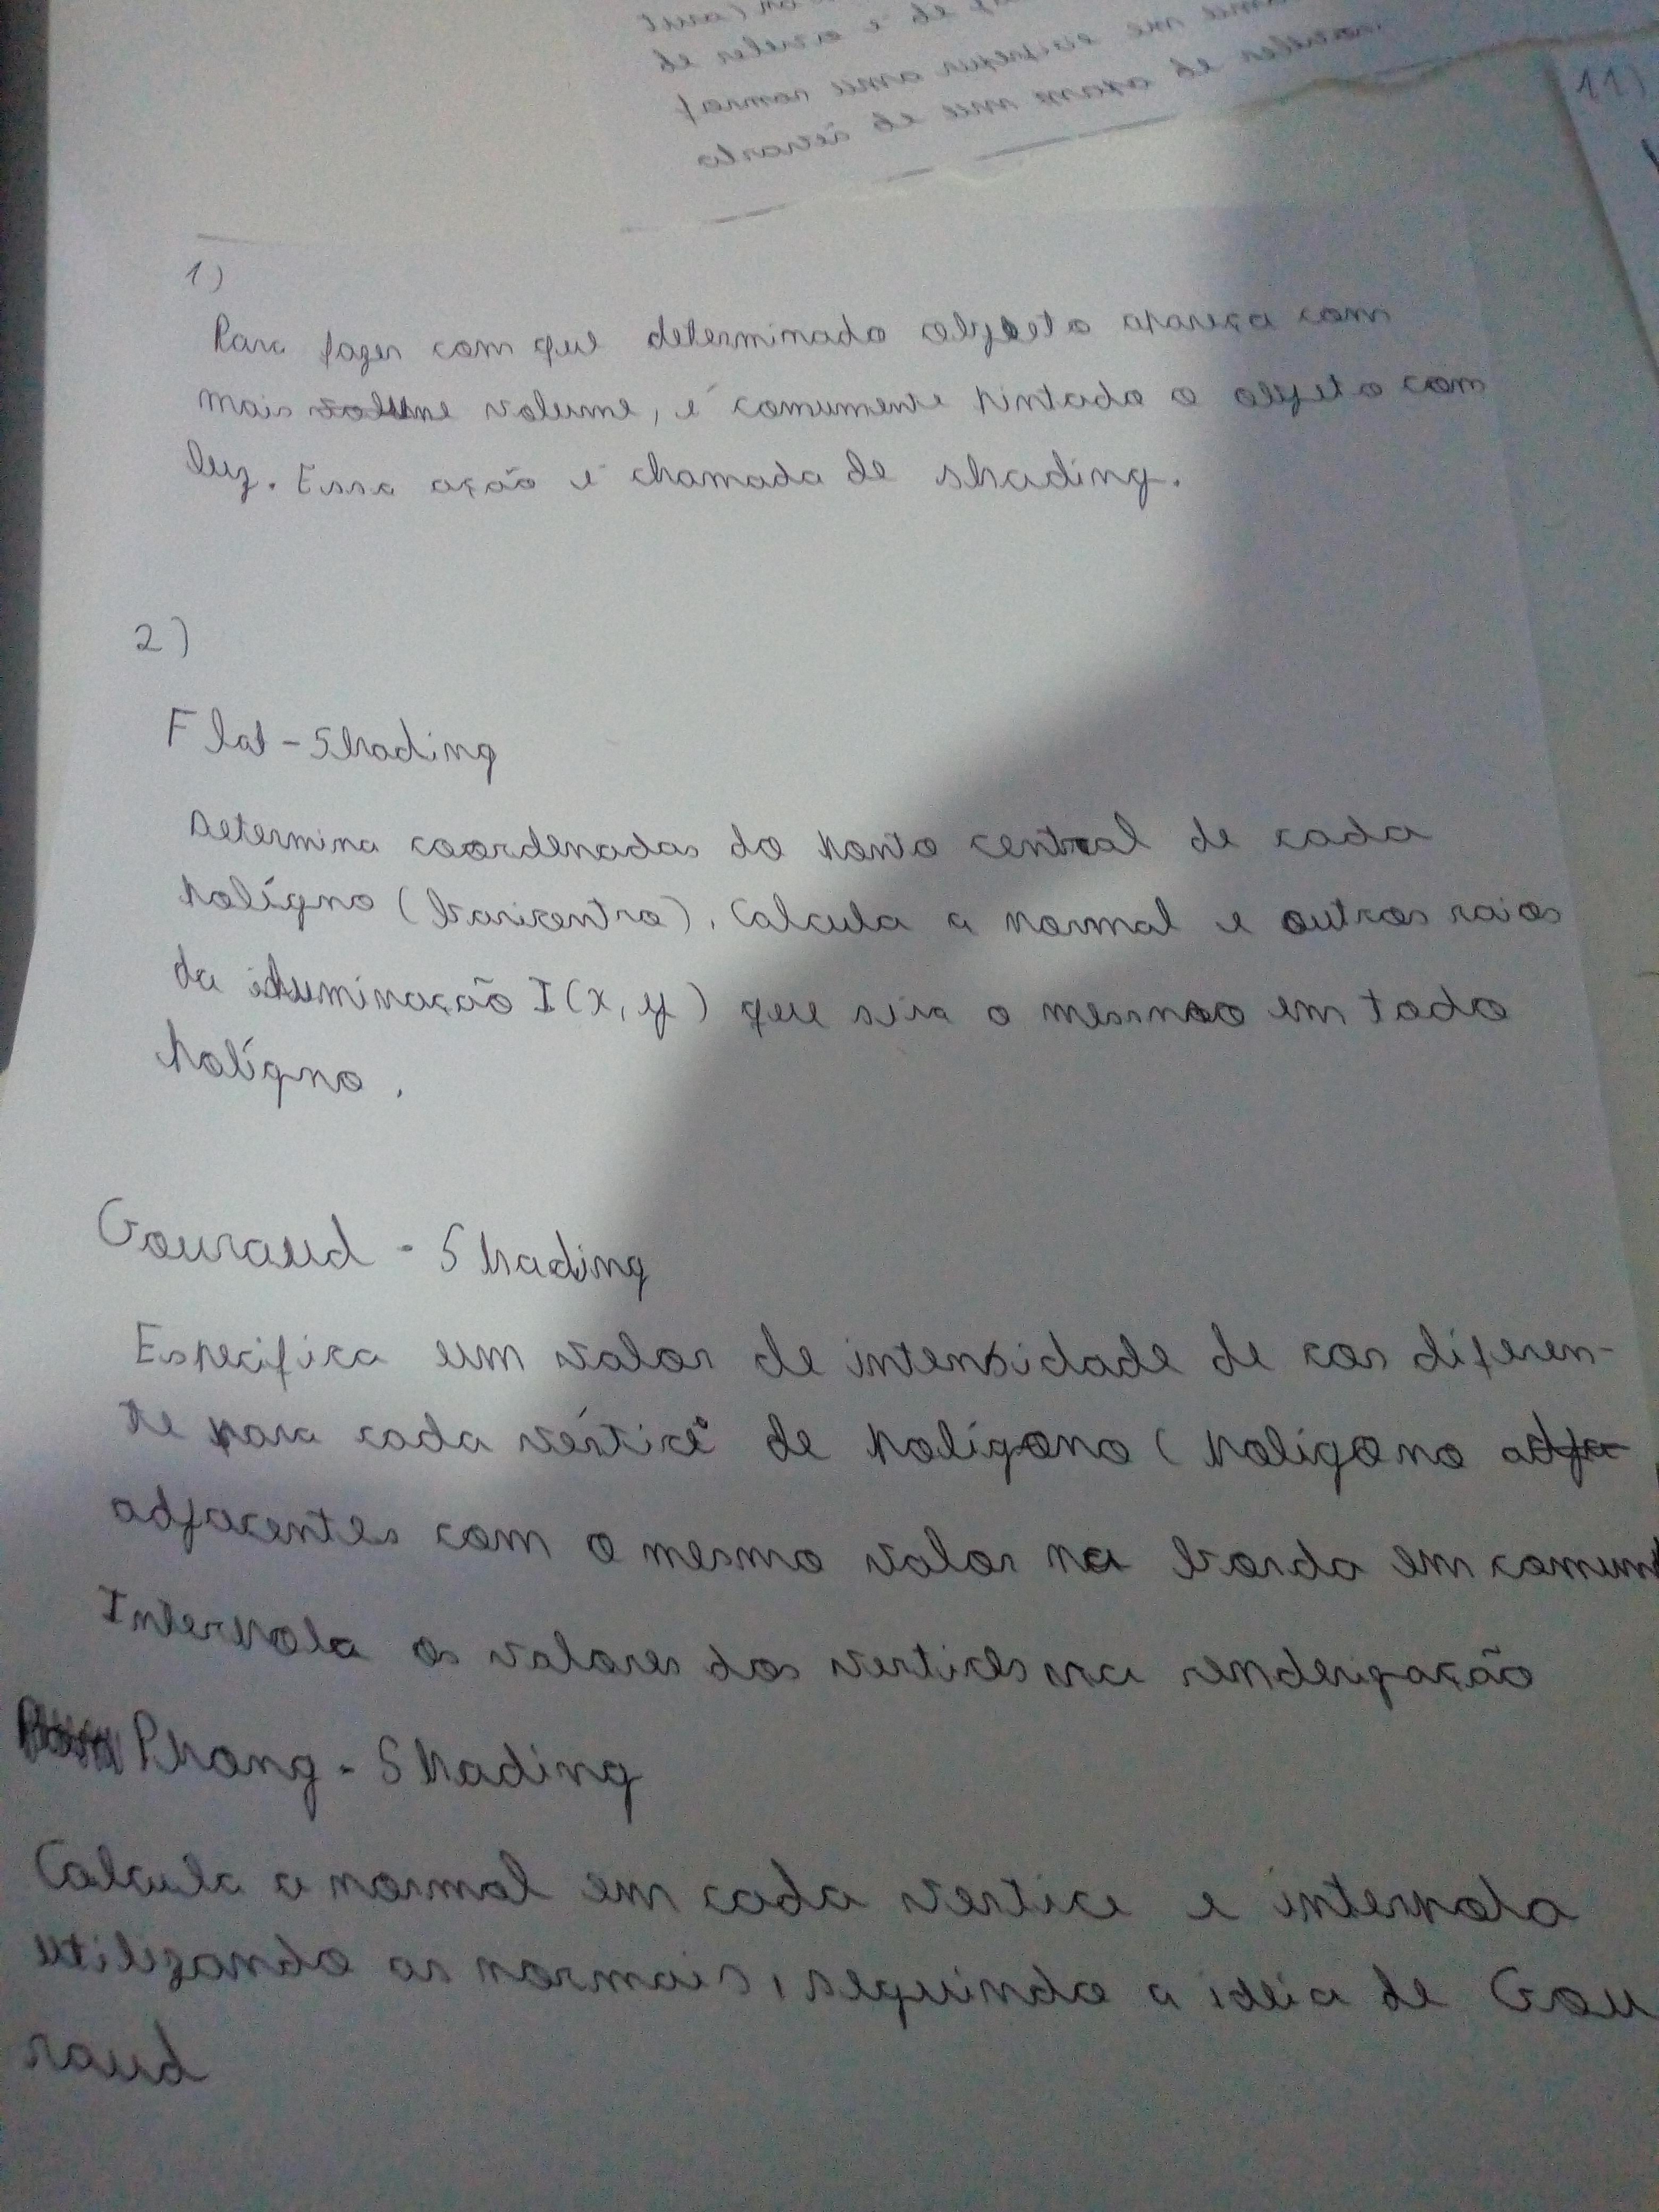 11)
1)
Para fazer com que determinado objeto apareça com
mais volume volume, é comumente pintado o objeto com
luz. Essa ação é chamada de shading.
2)
Flat-Shading
Determina coordenadas do ponto central de cada
polígno (baricentro). Calcula a normal e outros raios
da iluminação I(x, y) que sira o mesmo em todo
polígno.
Gouraud - Shading
Especifica um valor de intensidade de cor diferen-
te para cada vértice de polígono (polígono adja
adjacentes com o mesmo valor na borda em comum
Interpola os valores dos vertices na renderização
Phong - Shading
Calcula a normal em cada vertice e interpola
utilizando as normais, seguindo a ideia de Gou
raud